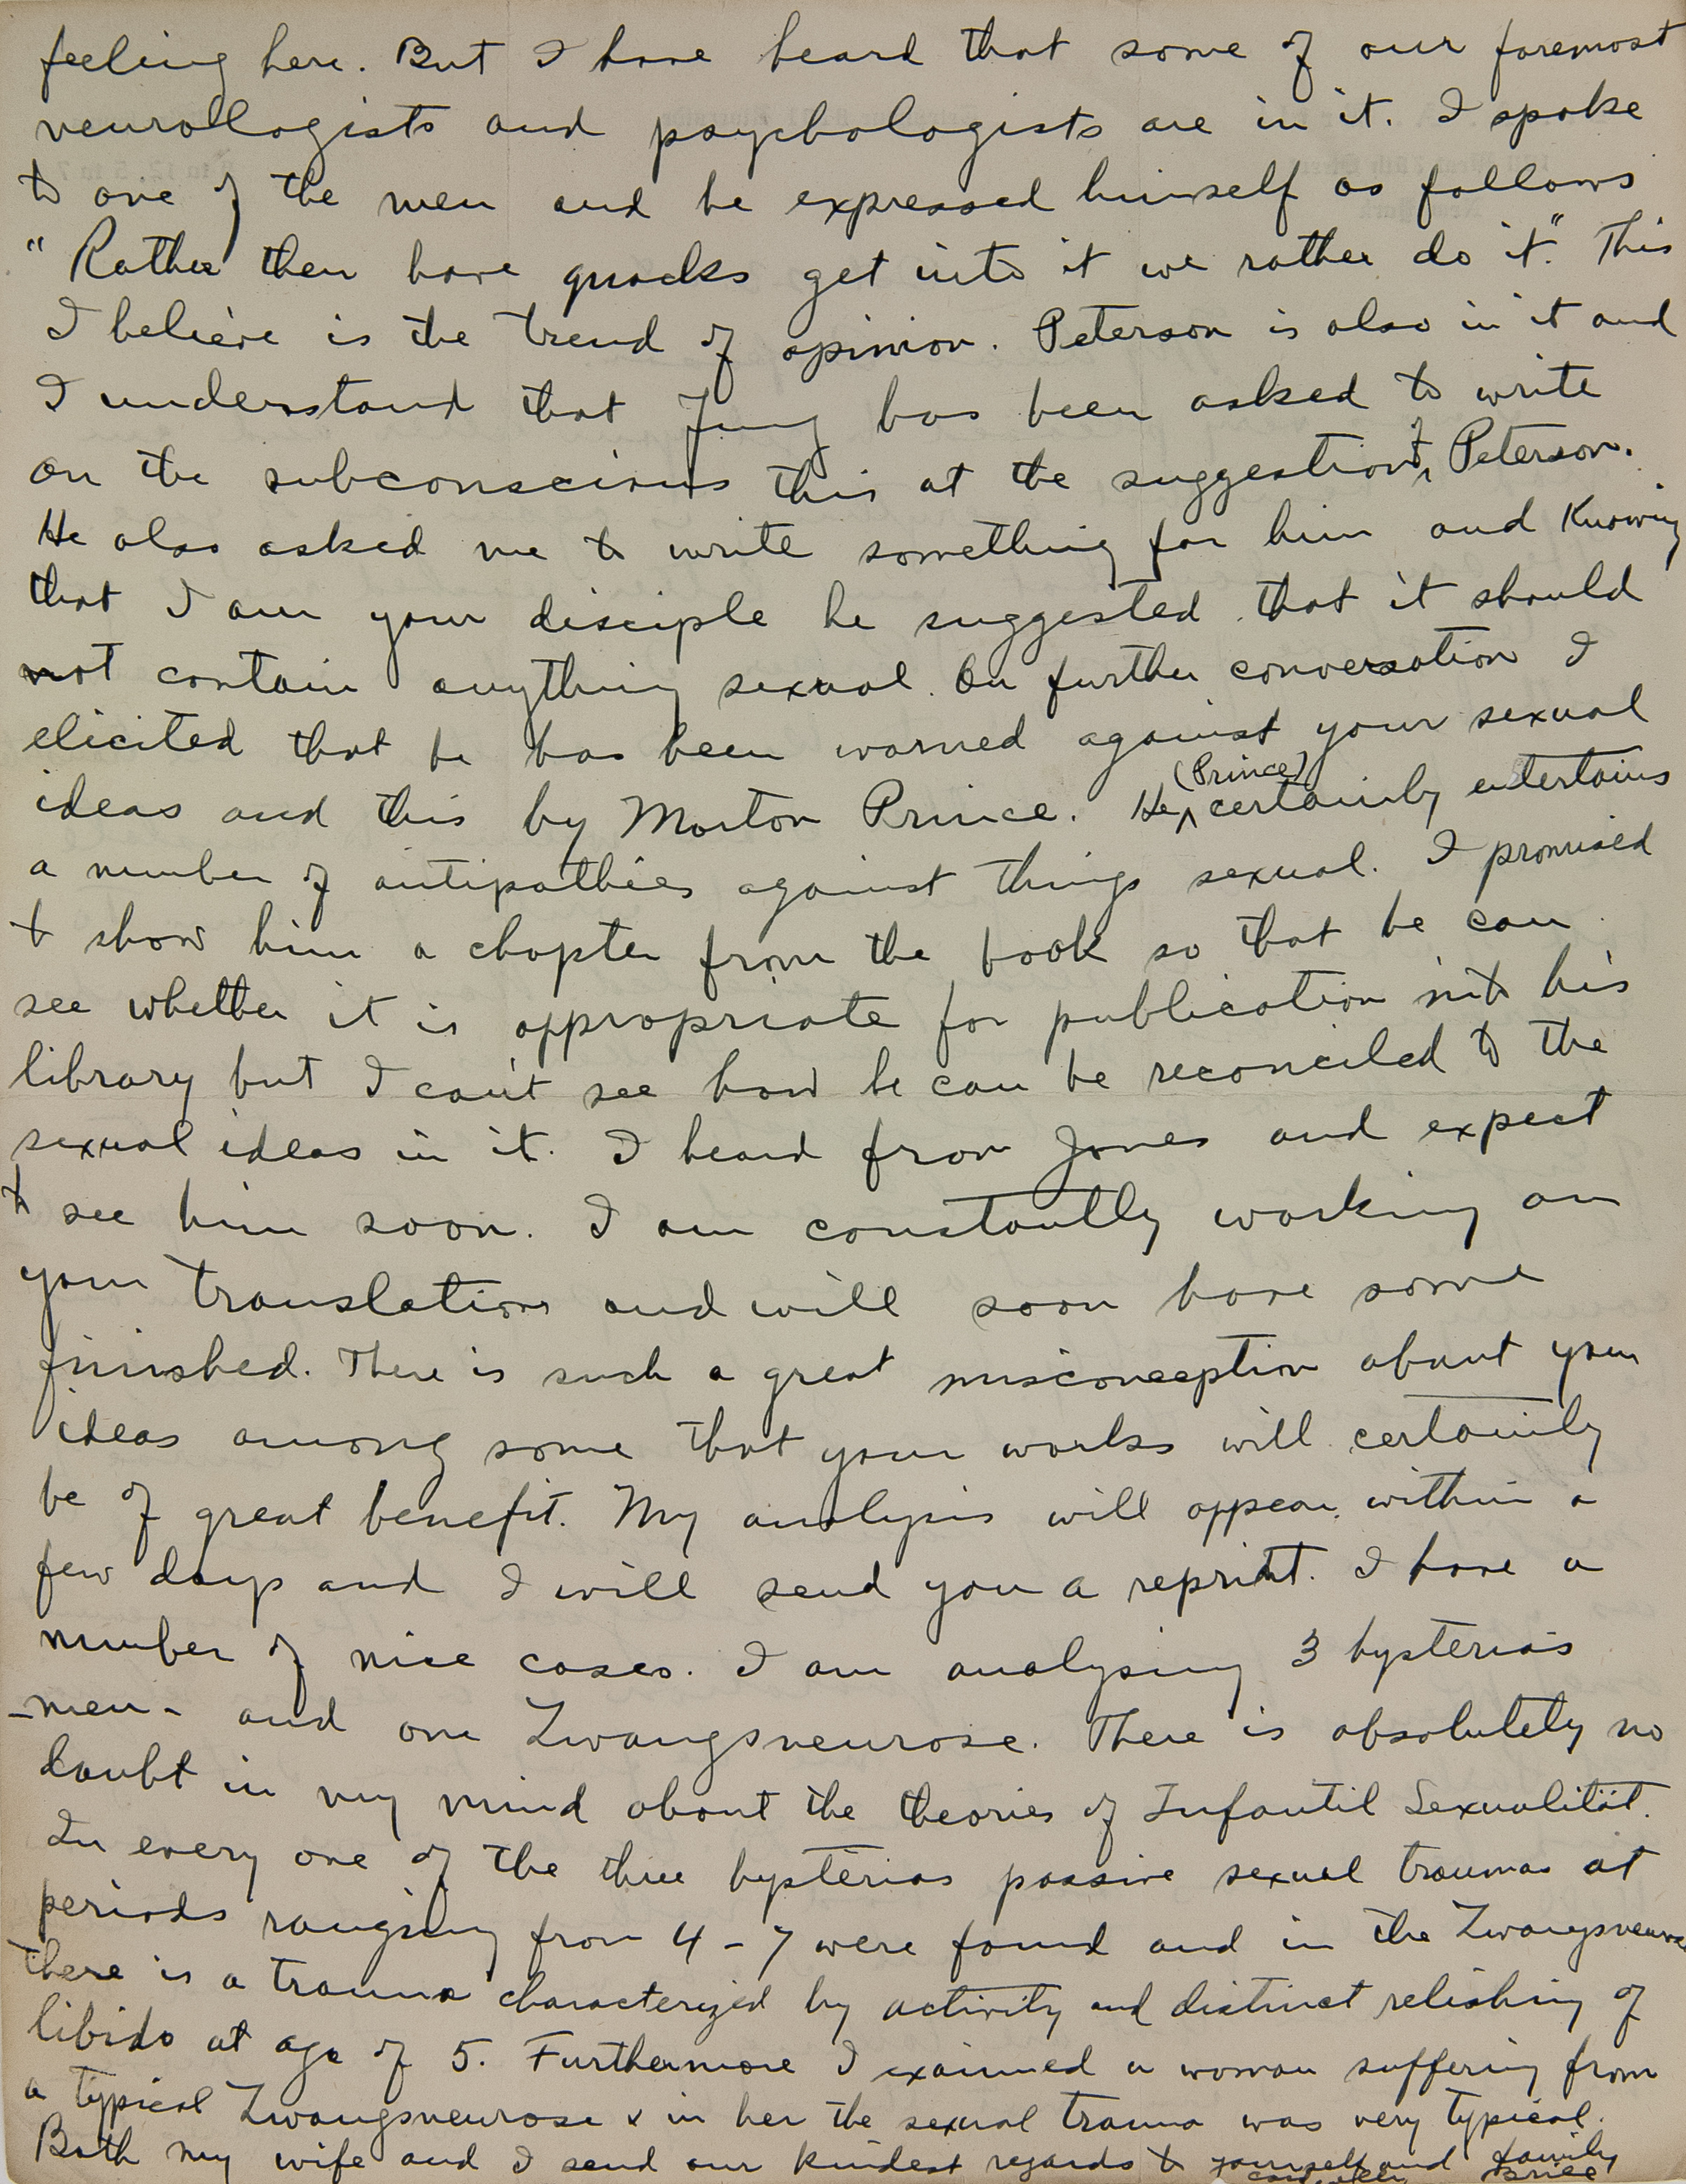 feeling here. But I have heard that some of our foremost
neurologists and psychologists are in it. I spoke
to one of the men and he expressed himself as follows
"Rather then have quacks get into it we rather do it." This
I believe is the trend of opinion. Peterson is also in it and
I understand that Jung has been asked to write
on the subconscious this at the suggestion of Peterson.
He also asked me to write something for him and Knowing
that I am your disciple he suggested that it should
not contain anything sexual. On further conversation I
elicited that he has been warned against your sexual
ideas and this by Morton Prince. He (Prince) certainly entertains
a number of antipathies against things sexual. I promised
to show him a chapter from the book so that he can
see whether it is appropriate for publication into his
library but I can't see how he can be reconciled to the
sexual ideas in it. I heard from Jones and expect
to see him soon. I am constantly working on
your translations and will soon have some
finished. There is such a great misconception about your
ideas among some that your works will certainly
be of great benefit. My analysis will appear within a
few days and I will send you a reprint. I have a
number of nice cases. I am analysing 3 hysterias
-men- and one Zwangsneurose. There is absolutely no
doubt in my mind about the theories of Infantil Sexualität.
In every one of the three hysterias passive sexual traumas at
periods ranging from 4-7 were found and in the Zwangsneurose
there is a trauma characterized by activity and distinct relishing of
libido at age of 5. Furthermore I examined a woman suffering from
a typical Zwangsneurose & in her the sexual trauma was very typical.
Both my wife and I send our kindest regards to yourself and family
Brill